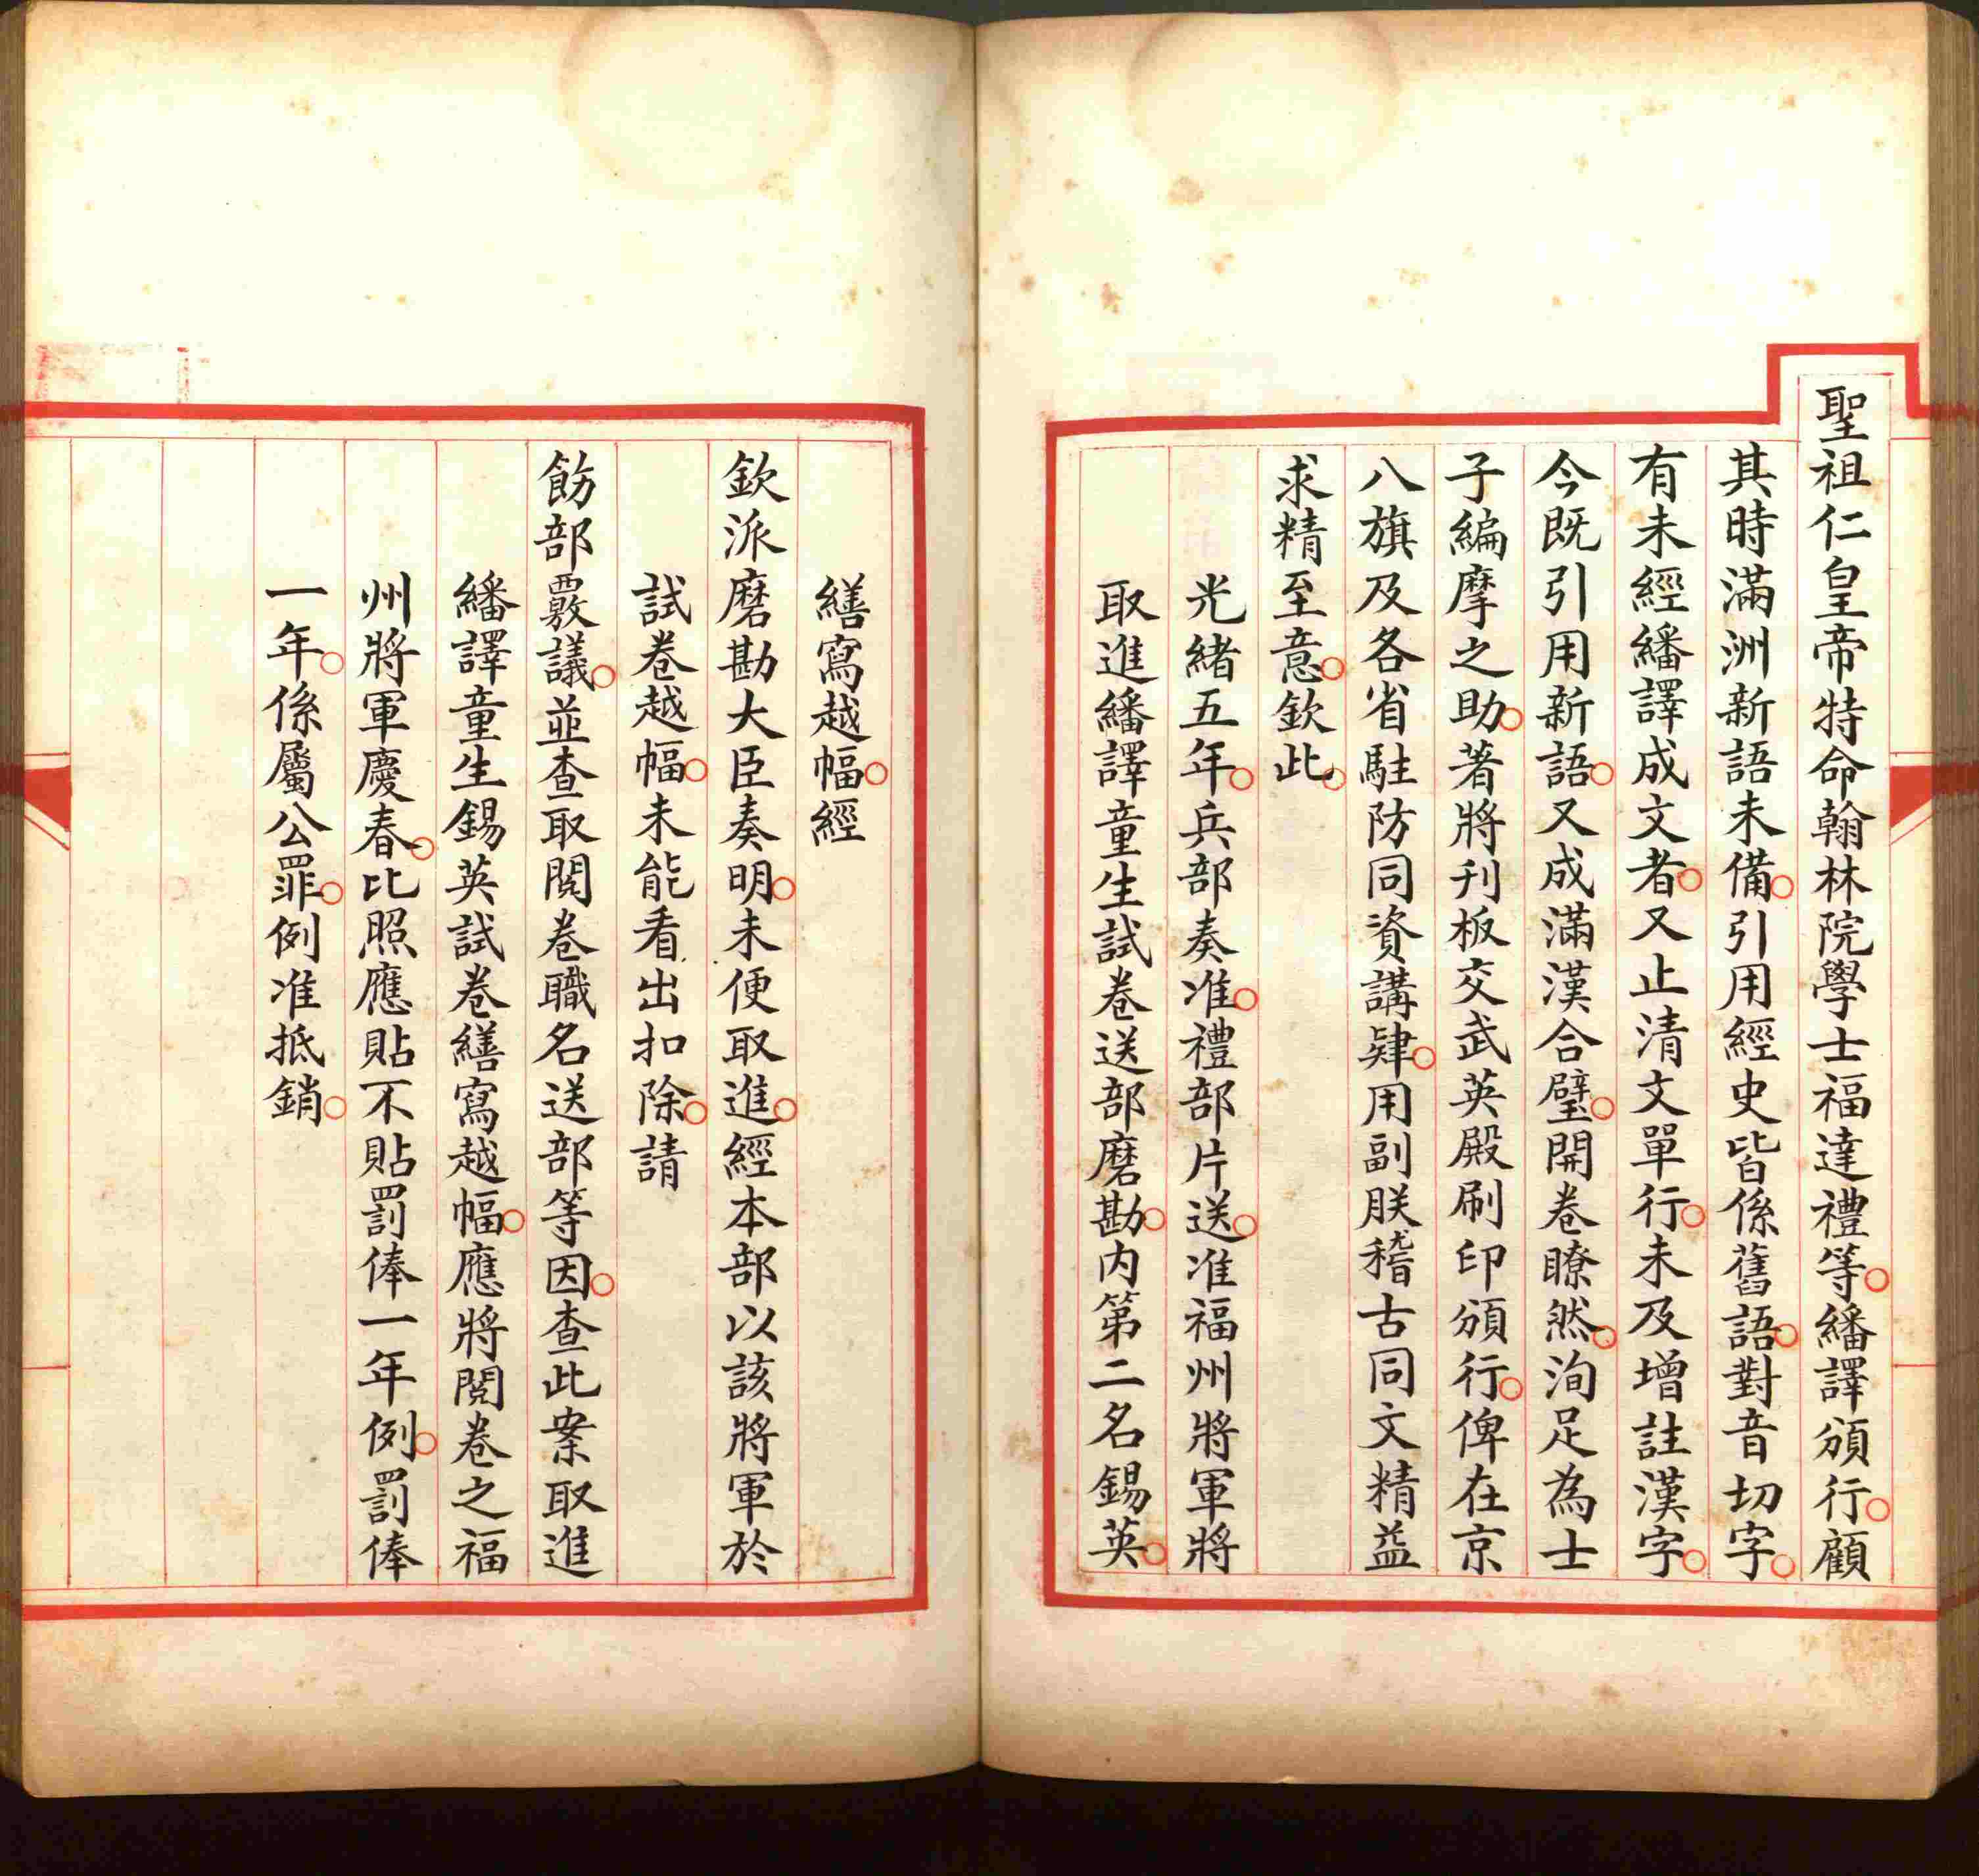 聖祖仁皇帝特命翰林院學士福達禮等○繙譯頒行○顧
其時滿洲新語未備○引用經史皆係舊語○對音切字○
有未經繙譯成文者○又止清文單行○未及增註漢字○
今既引用新語○又成滿漢合璧○開卷瞭然○洵足為士
子編摩之助○著將刊板交武英殿刷印頒行○俾在京
八旗及各省駐防同資講肄○用副朕稽古同文精益
求精至意○欽此○
光緒五年○兵部奏准○禮部片送○准福州將軍將
取進繙譯童生試卷送部磨勘○內第二名錫英○
繕寫越幅○經
欽派磨勘大臣奏明○未便取進○經本部以該將軍於
試卷越幅○未能看出扣除○請
飭部覈議○並查取閱卷職名送部等因○查此案取進
繙譯童生錫英試卷繕寫越幅○應將閱卷之福
州將軍慶春○比照應貼不貼罰俸一年例○罰俸
一年○係屬公罪○例准抵銷○